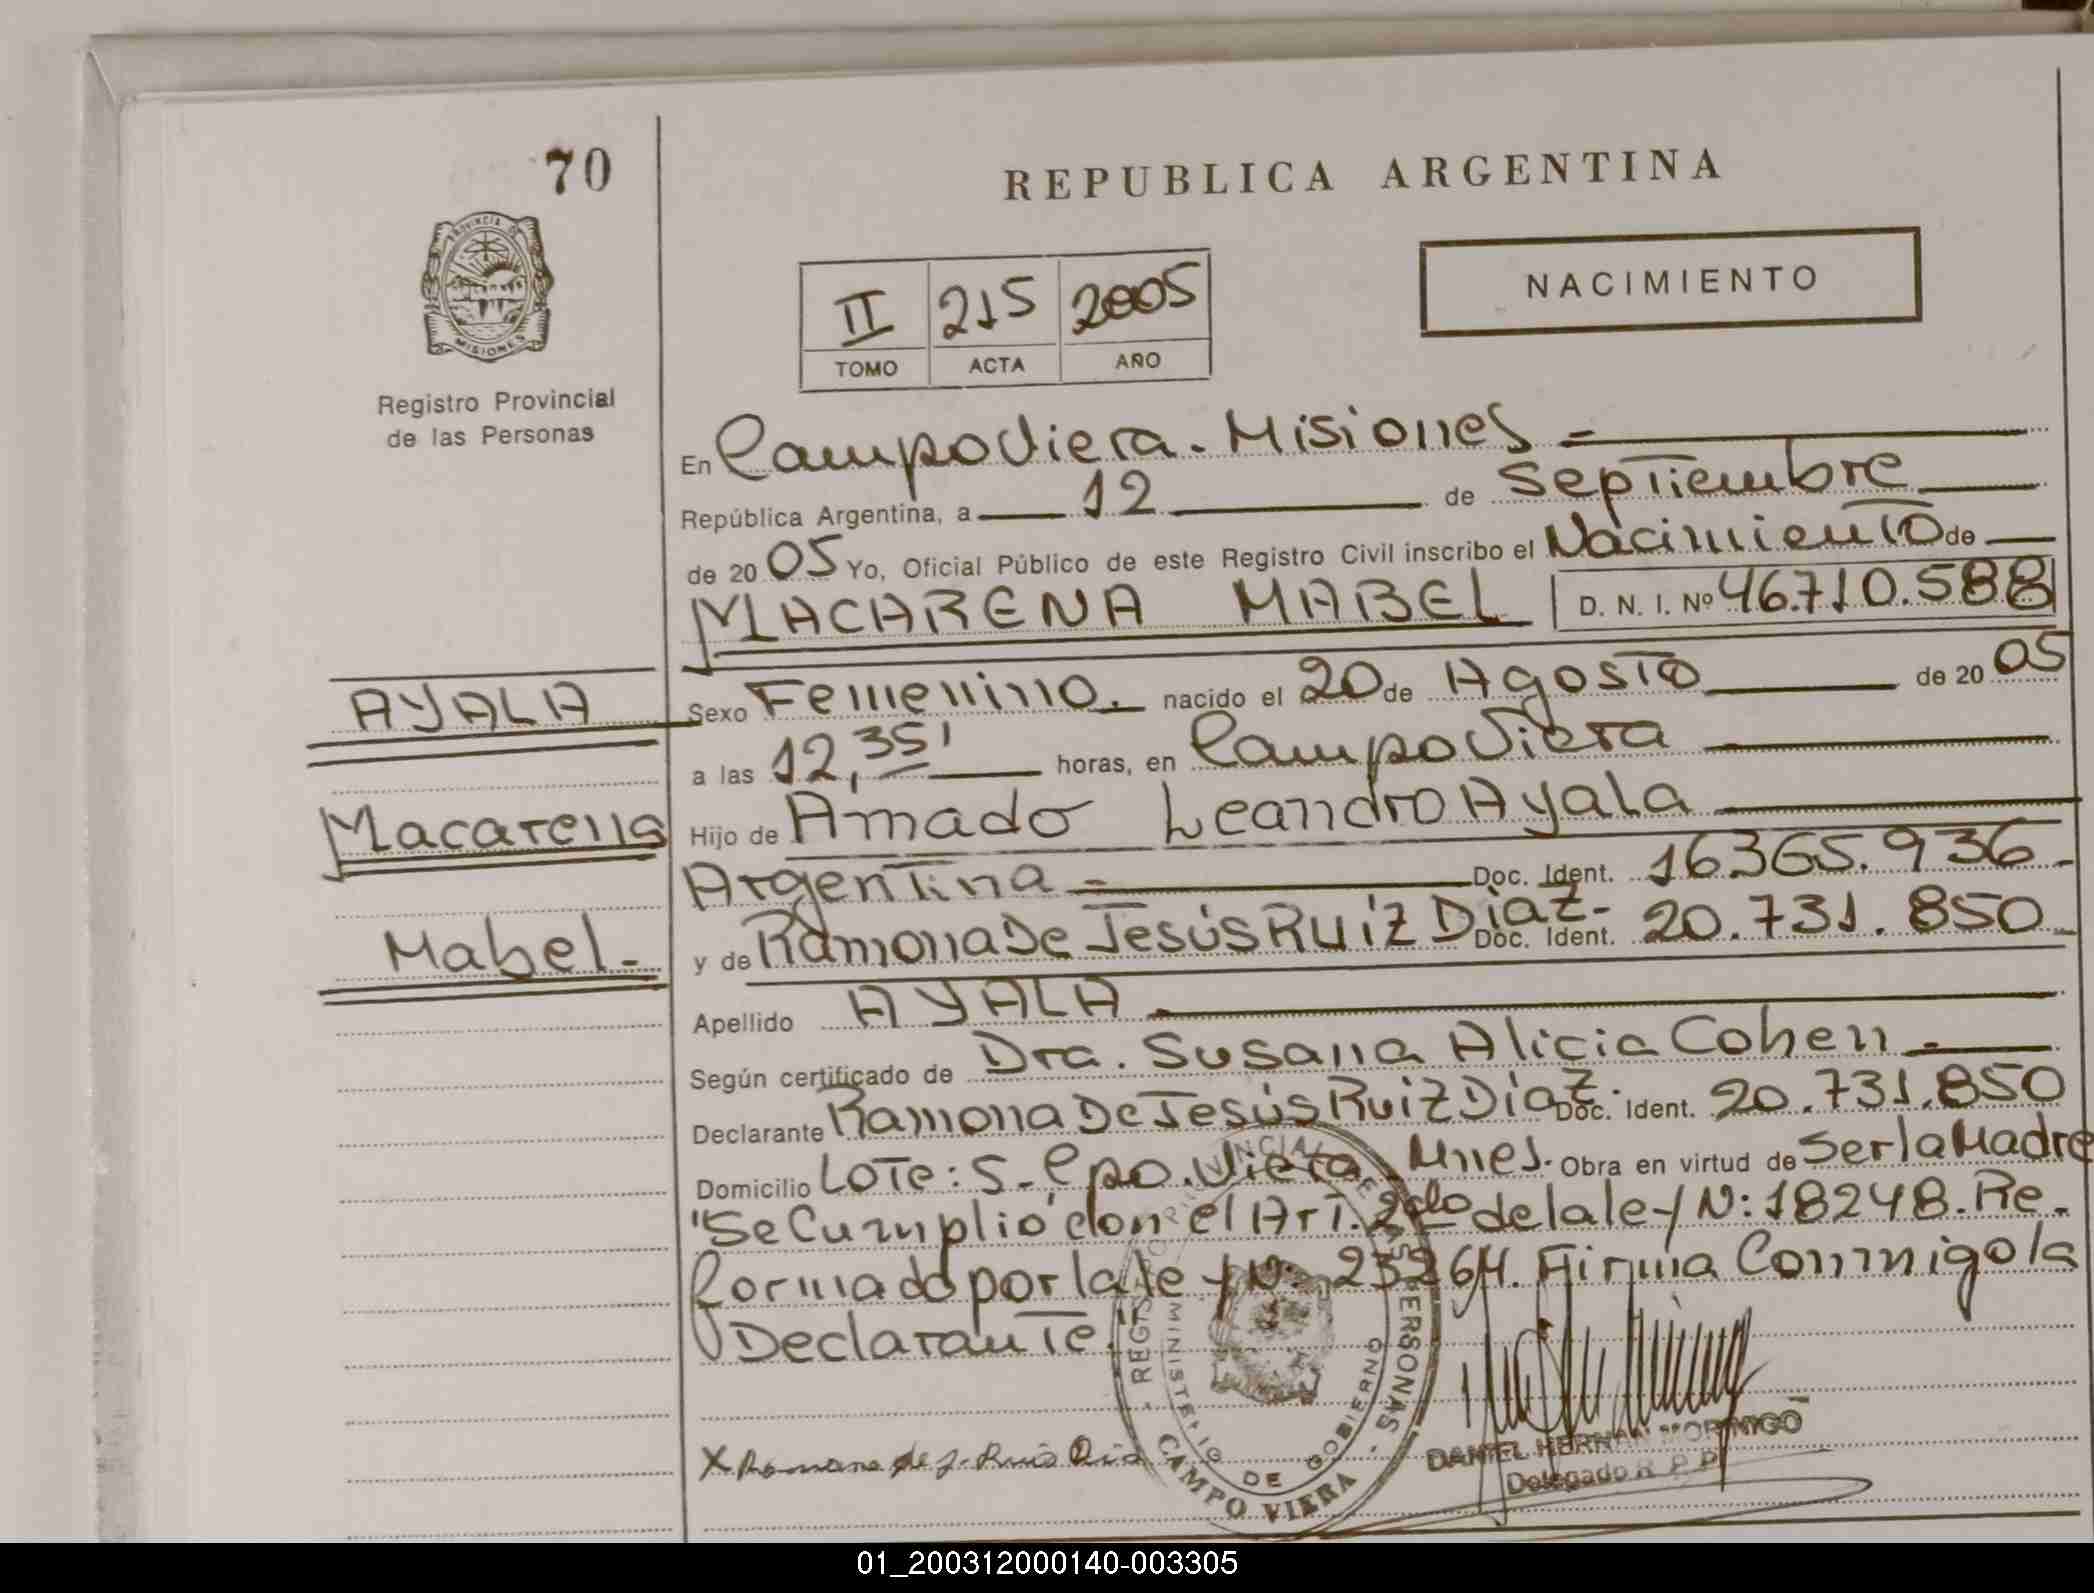 70
REPUBLICA ARGENTINA
NACIMIENTO
II 215 2005
TOMO ACTA AÑO
PROVINCIA DE
MISIONES
Registro Provincial
de las Personas
En Campo Viera - Misiones =
República Argentina, a 12 de Septiembre
de 20 05 Yo, Oficial Público de este Registro Civil inscribo el Nacimiento de
MACARENA MABEL D. N. I. Nº 46.710.588
AYALA
Sexo Femenino. nacido el 20 de Agosto de 20 05
a las 12,35' horas, en Campo Viera
Macarena
Hijo de Amado Leandro Ayala
Argentina = Doc. Ident. 16365.936
Mabel.
y de Ramona De Jesús Ruiz Díaz - Doc. Ident. 20.731.850
Apellido AYALA
Según certificado de Dra. Susana Alicia Cohen
Declarante Ramona De Jesús Ruiz Díaz Doc. Ident. 20.731.850
Domicilio Lote: 5 - Cpo. Viera Mnes. Obra en virtud de Ser la Madre
"Se Cumplió con el Art. 2do de la ley N: 18248. Re-
formado por la ley Nº 23264. Firma Conmigo la
Declarante."
REGISTRO PROVINCIAL DE LAS PERSONAS
MINISTERIO DE GOBIERNO
CAMPO VIERA
X Ramona de J. Ruis Dia
DANIEL HERNAN MORINIGO
Delegado R P P
01_200312000140-003305